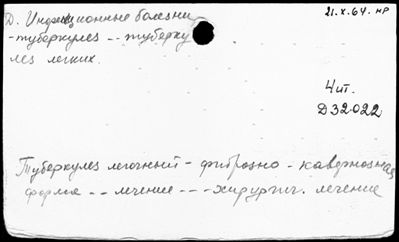 Д. Инфекционные болезни
21.X.64. нр
-туберкулез -- туберку
лез легких.
4 ит.
Д32022
Туберкулез легочный - фиброзно - кавернозная
форма -- лечение --- хирургич. лечение